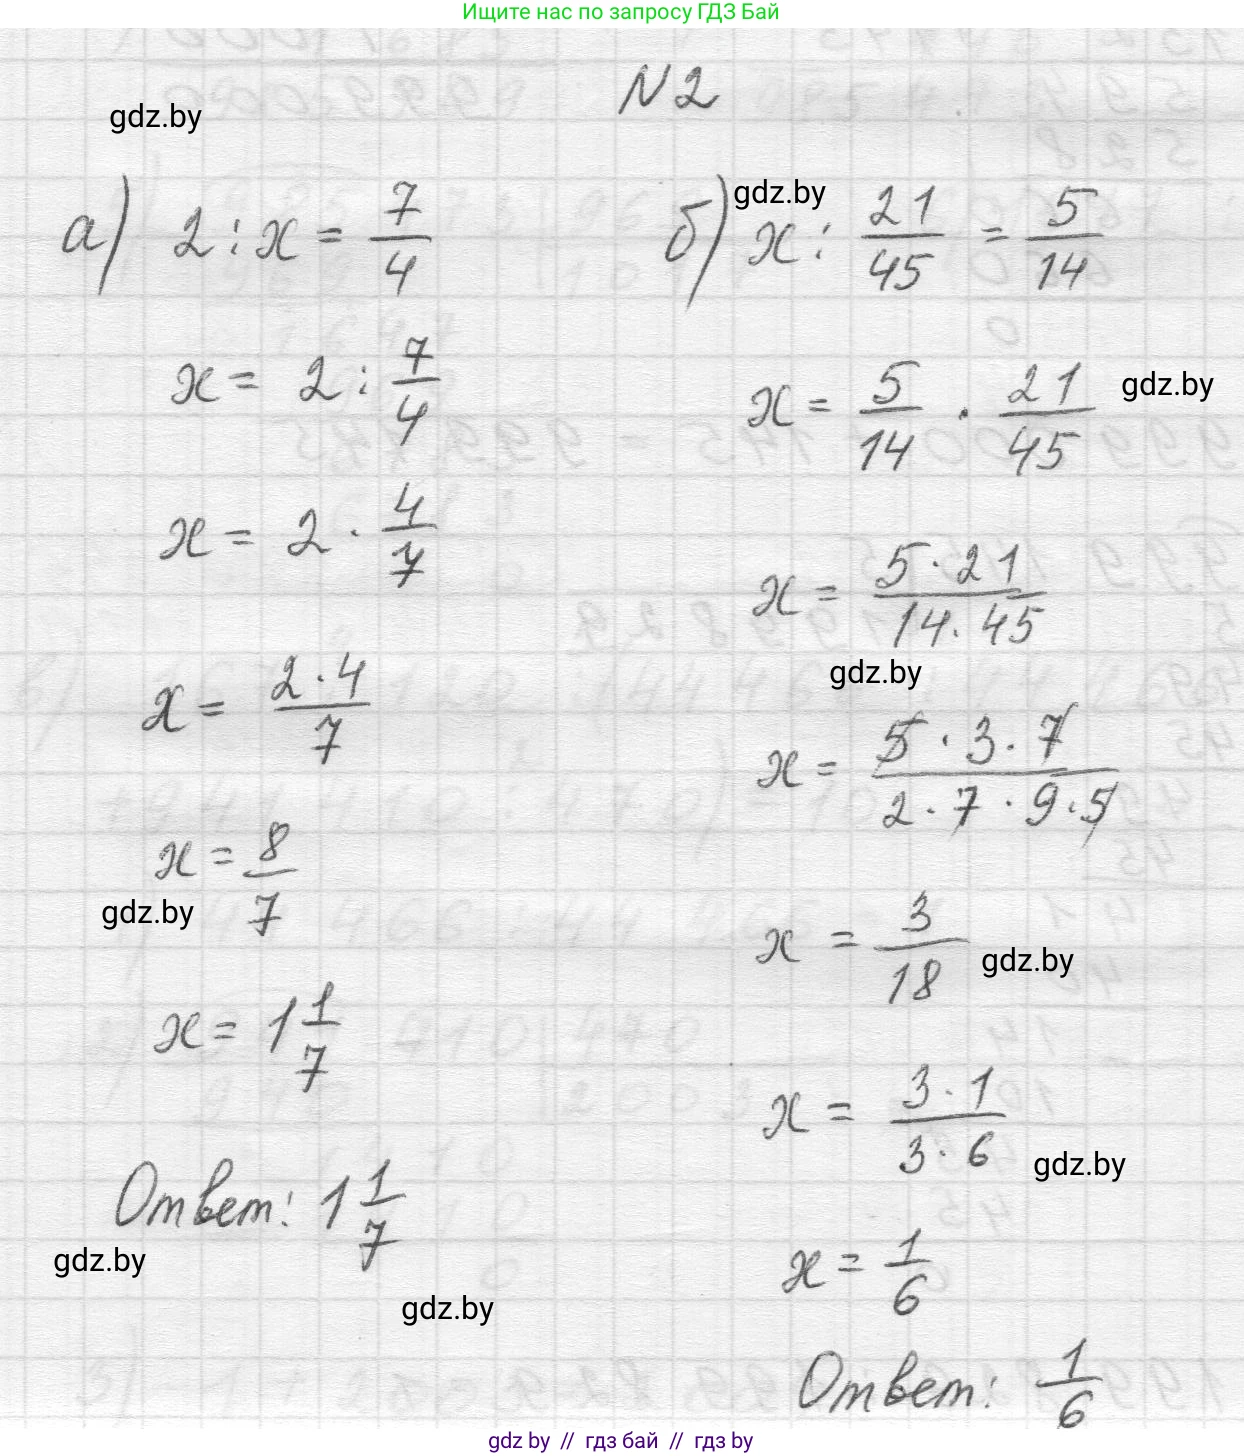 Ищите нас по запросу ГДЗ Бай
N 2
gdz.by
а) 2 : x = 7/4
x = 2 : 7/4
x = 2 · 4/7
x = 2 · 4/7
x = 8/7
gdz.by
x = 1 1/7
Ответ: 1 1/7
gdz.by
gdz.by
б) x : 21/45 = 5/14
gdz.by
x = 5/14 · 21/45
gdz.by
x = 5 · 21/14 · 45
gdz.by
x = 5 · 3 · 7/2 · 7 · 9 · 5
x = 3/18
gdz.by
x = 3 · 1/3 · 6
gdz.by
x = 1/6
Ответ: 1/6
gdz by // гдз бай // гдз by